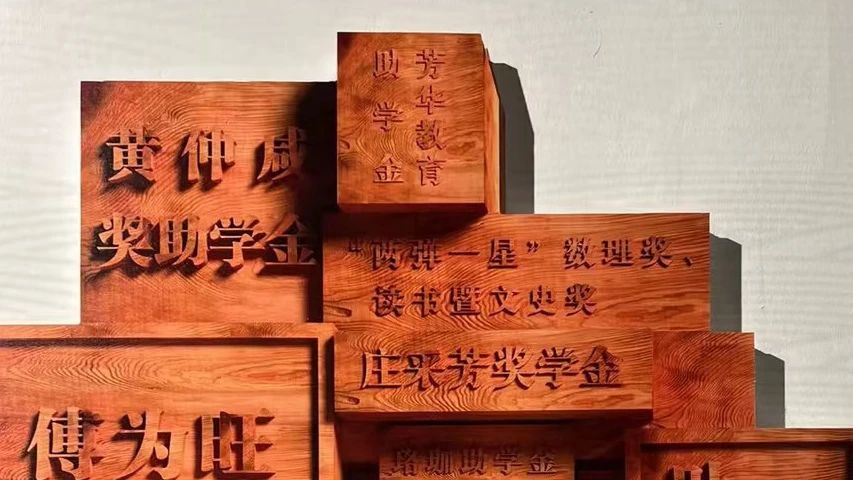 芳华教育
助学金
黄仲咸
奖助学金
“两弹一星”数理奖、
读书暨文史奖
庄采芳奖学金
傅为旺
珞珈助学金